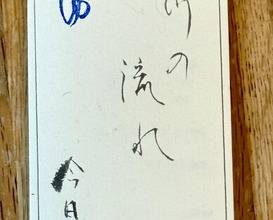 川の
流れ
今日